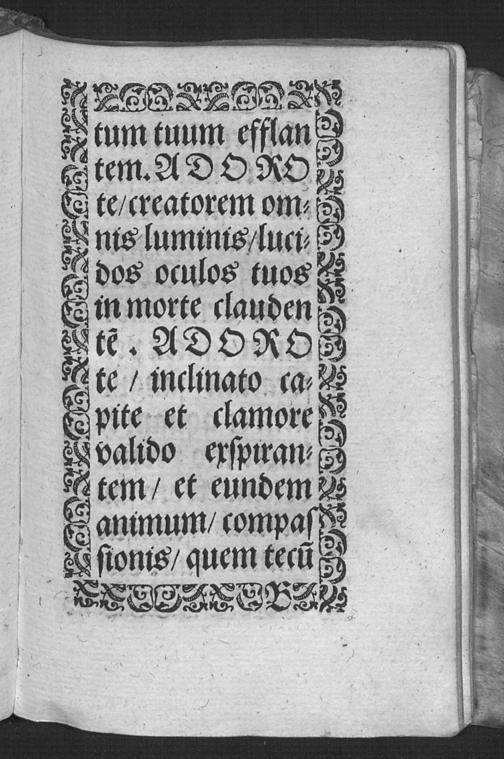 tum tuum efflan
tem. ADORO
te/creatorem om⸗
nis luminis/luci⸗
dos oculos tuos
in morte clauden
tē . ADORO
te / inclinato ca⸗
pite et clamore
valido exſpiran⸗
tem/ et eundem
animum/ compaſ
ſionis/ quem tecū
B